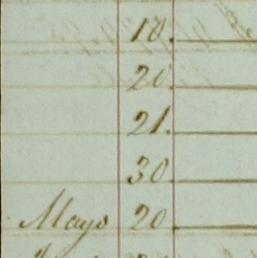 10.
20.
21.
30.
Mayo 20.